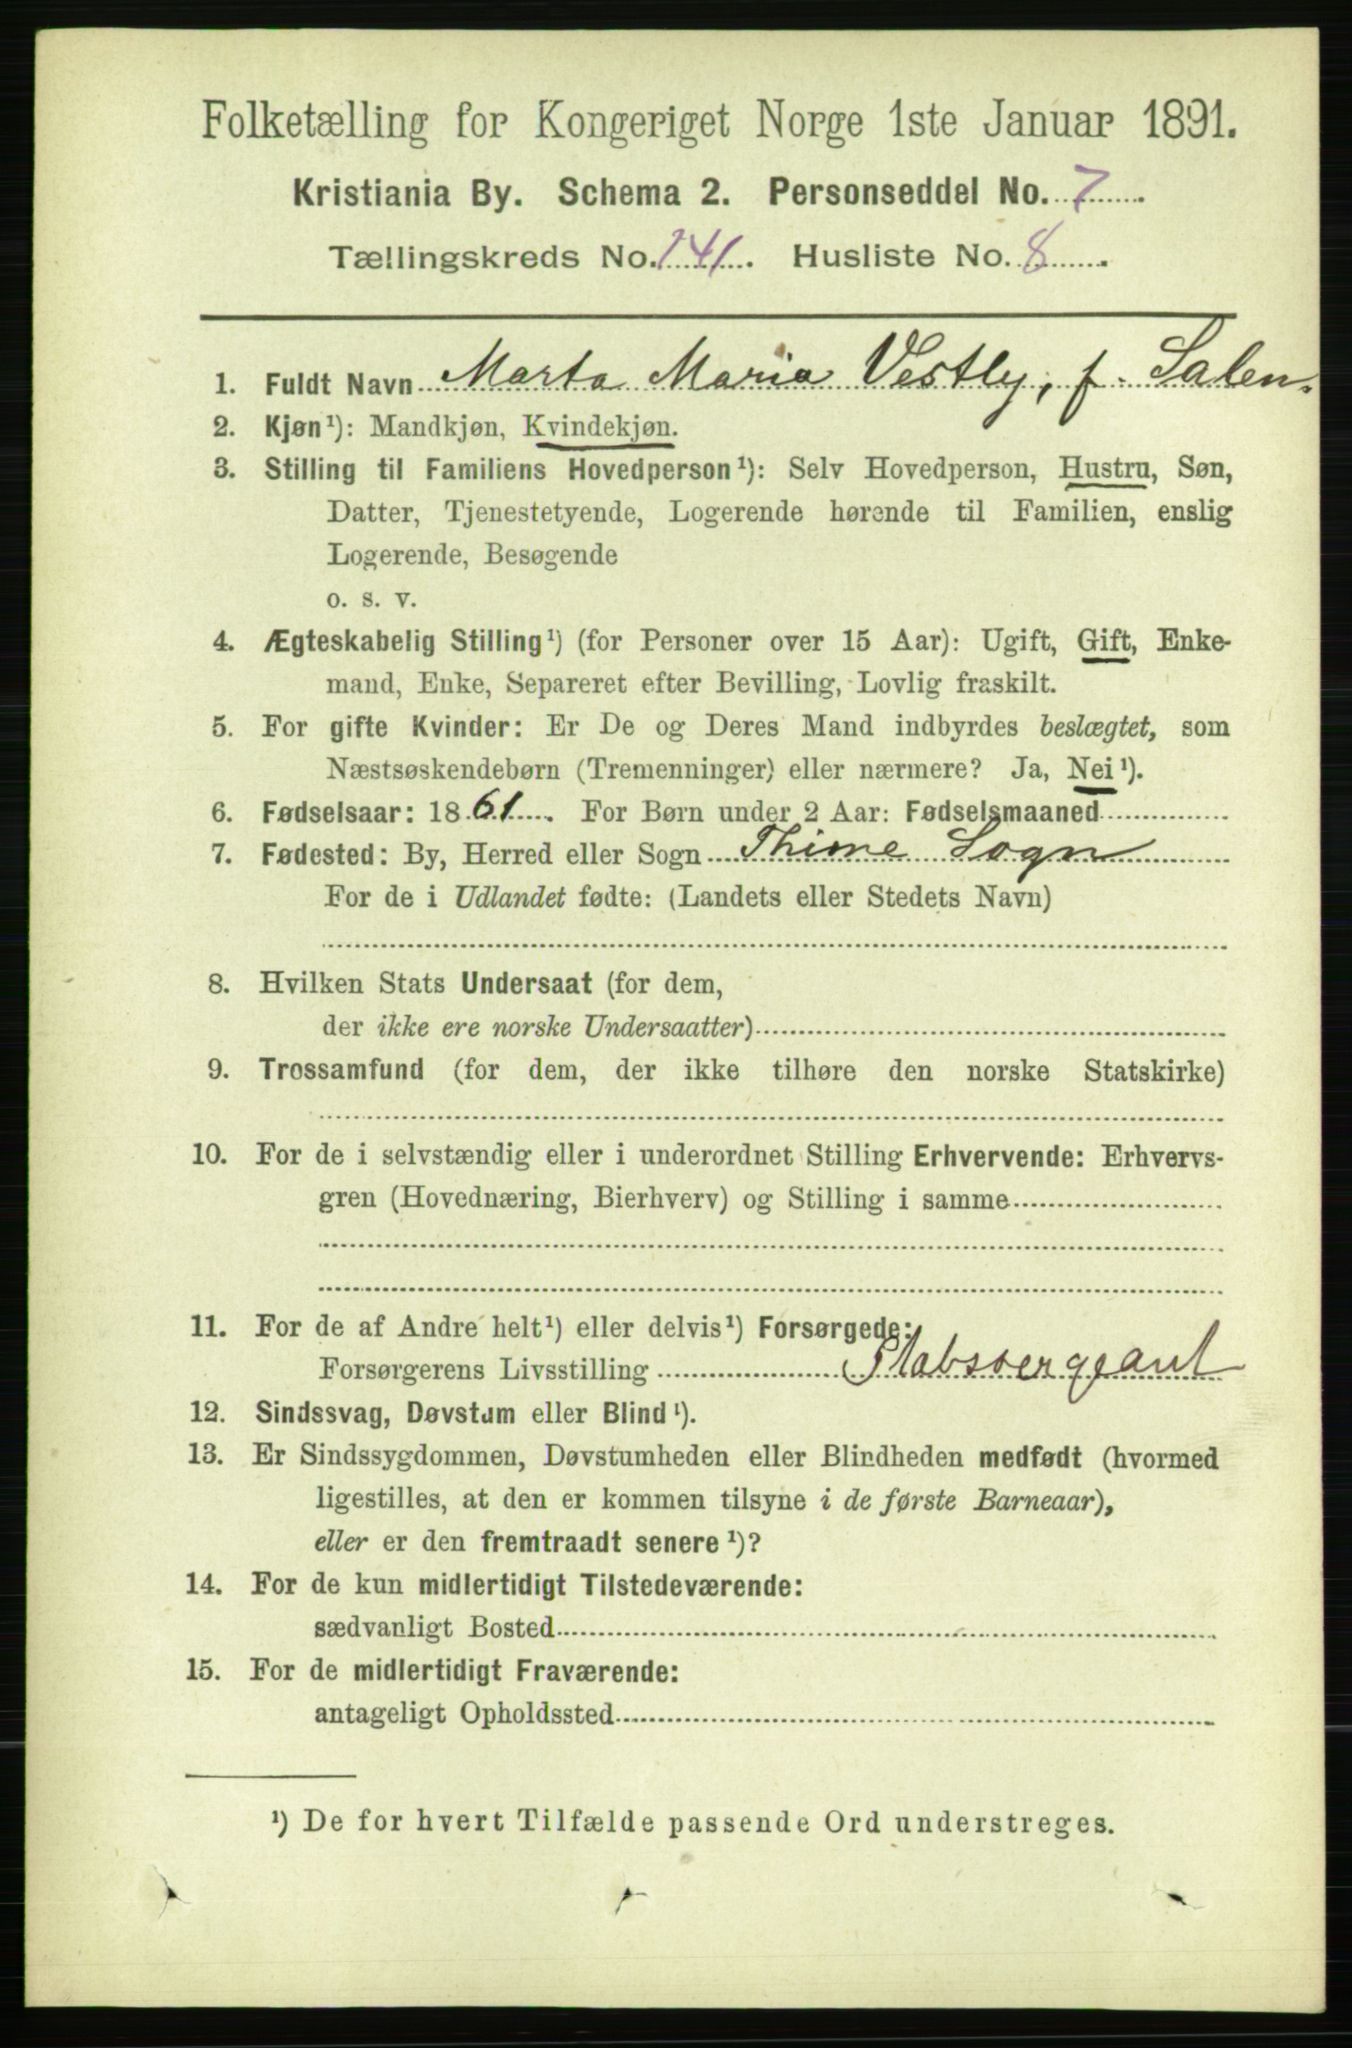 Folketælling for Kongeriget Norge 1ste Januar 1891.
Kristiania By. Schema 2. Personseddel No. 7
Tællingskreds No. 141. Husliste No. 8.
1. Fuldt Navn Marta Maria Vestly, f. Salen.
2. Kjøn¹): Mandkjøn, Kvindekjøn.
3. Stilling til Familiens Hovedperson¹): Selv Hovedperson, Hustru, Søn,
Datter, Tjenestetyende, Logerende hørende til Familien, enslig
Logerende, Besøgende
o. s. v.
4. Ægteskabelig Stilling¹) (for Personer over 15 Aar): Ugift, Gift, Enke-
mand, Enke, Separeret efter Bevilling, Lovlig fraskilt.
5. For gifte Kvinder: Er De og Deres Mand indbyrdes beslægtet, som
Næstsøskendebørn (Tremenninger) eller nærmere? Ja, Nei¹).
6. Fødselsaar: 1861. For Børn under 2 Aar: Fødselsmaaned
7. Fødested: By, Herred eller Sogn Thime Sogn
For de i Udlandet fødte: (Landets eller Stedets Navn)
8. Hvilken Stats Undersaat (for dem,
der ikke ere norske Undersaatter)
9. Trossamfund (for dem, der ikke tilhøre den norske Statskirke)
10. For de i selvstændig eller i underordnet Stilling Erhvervende: Erhvervs-
gren (Hovednæring, Bierhverv) og Stilling i samme
11. For de af Andre helt¹) eller delvis¹) Forsørgede:
Forsørgerens Livsstilling Stabssergeant
12. Sindssvag, Døvstum eller Blind¹).
13. Er Sindssygdommen, Døvstumheden eller Blindheden medfødt (hvormed
ligestilles, at den er kommen tilsyne i de første Barneaar),
eller er den fremtraadt senere¹)?
14. For de kun midlertidigt Tilstedeværende:
sædvanligt Bosted
15. For de midlertidigt Fraværende:
antageligt Opholdssted
¹) De for hvert Tilfælde passende Ord understreges.